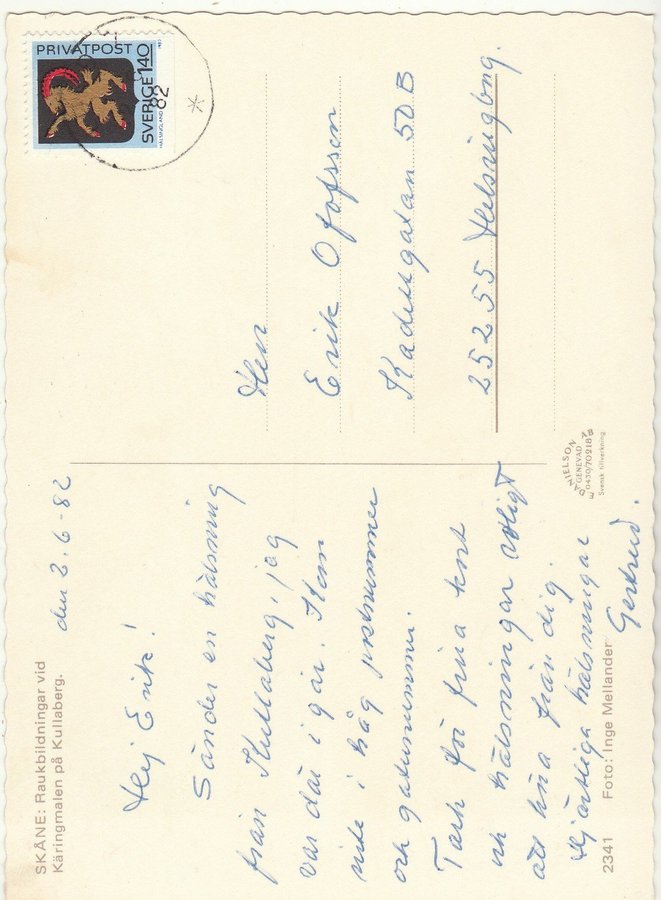 SKÅNE: Raukbildningar vid
Käringmalen på Kullaberg.
den 2.6-82
Hej Erik!
Sänder en hälsning
från Kullaberg, jag
var där i går. Kom
inte i håg postnummer
och gatunummer.
Tack för fina kort
och hälsningar roligt
att höra från dig.
Hjärtliga hälsningar
Gertrud.
2341 Foto: Inge Mellander
DANIELSON
GENEVAD
0430/70218
Svensk tillverkning
PRIVATPOST
SVERIGE 140
HÄLSINGLAND
1982
82
Herr
Erik Olofsson
Kadettgatan 50 B
25255 Helsingborg.